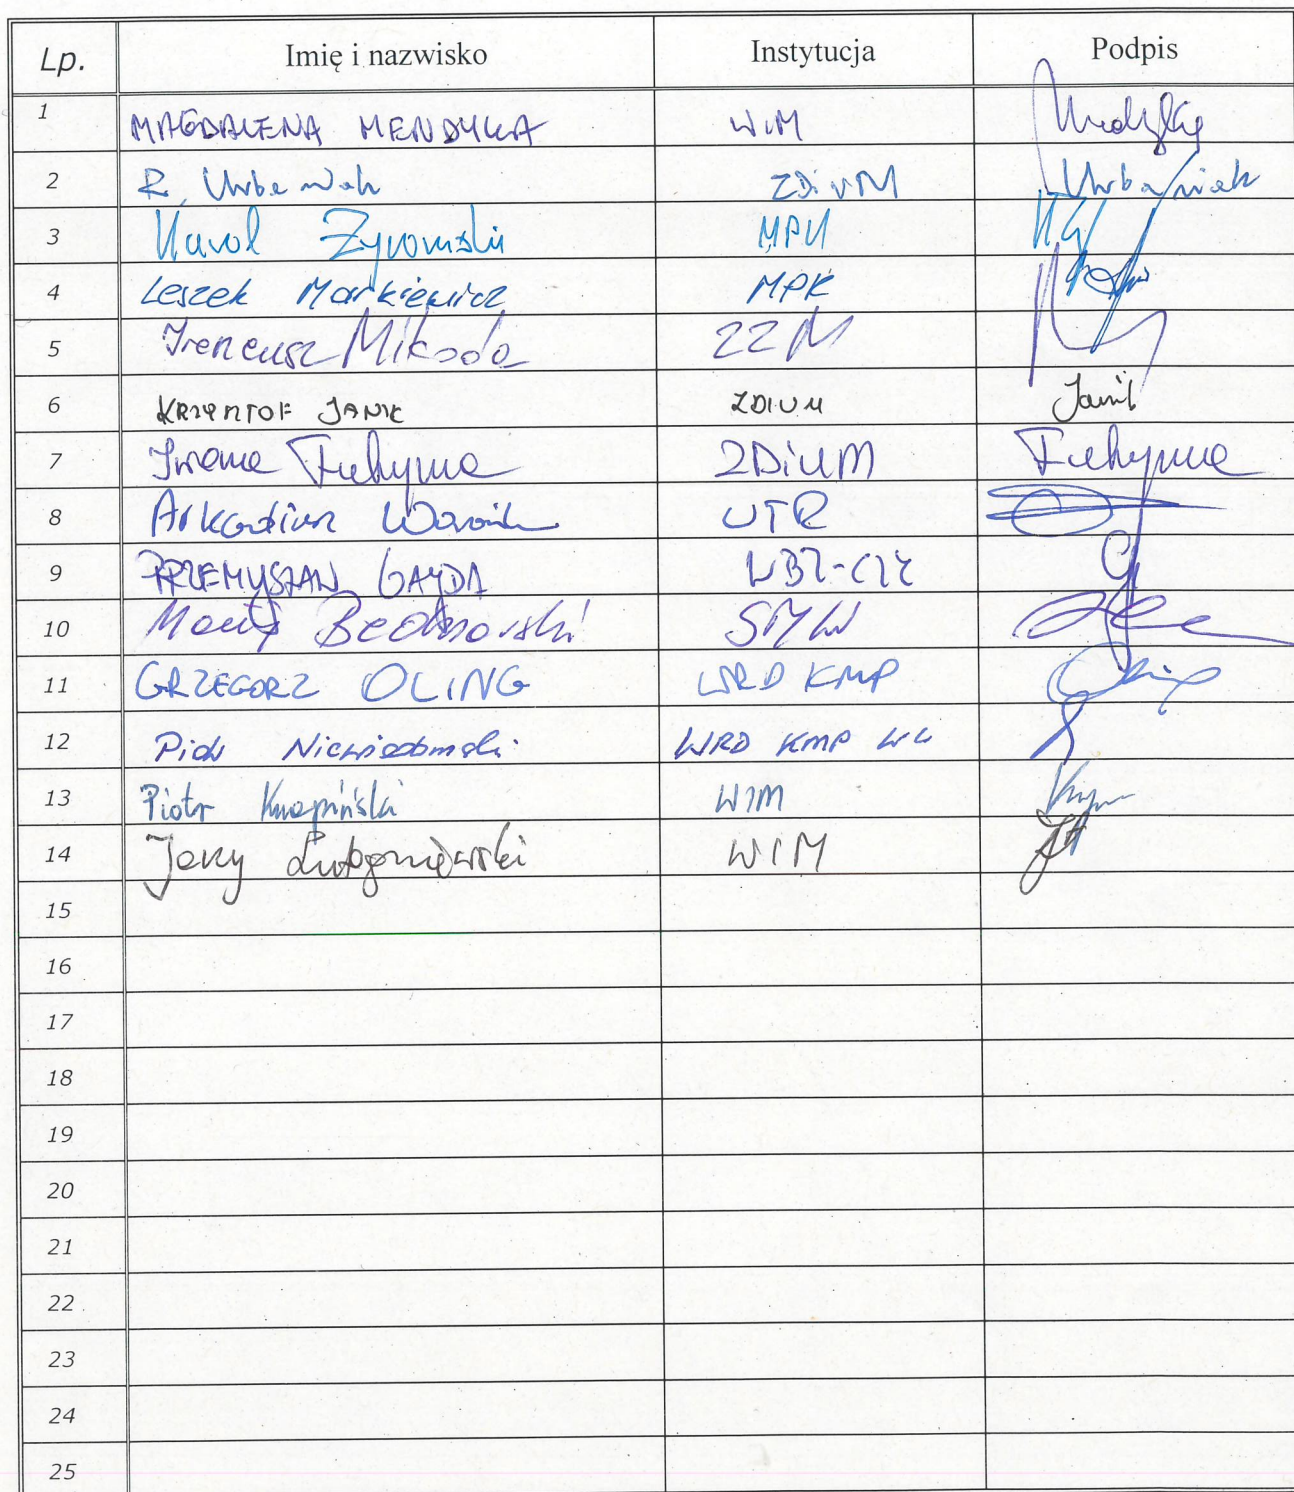 Lp. Imię i nazwisko Instytucja Podpis
1 MAGDALENA MENDYKA WIM
2 R. Urbaniak ZDiUM Urbaniak
3 Karol Żyromski MPK
4 Leszek Markiewicz MPK
5 Ireneusz Mikoda ZZM
6 KRZYSZTOF JANIK ZDIUM Janik
7 Iwona Fuhyma ZDiUM Fuhyma
8 Arkadiusz UTR
9 PRZEMYSŁAW GAJDA
10 Bednarski SMW
11 GRZEGORZ OLING WRD KMP
12 Piotr WRD KMP
13 Piotr Knapiński WIM
14 Jerzy WIM
15
16
17
18
19
20
21
22
23
24
25